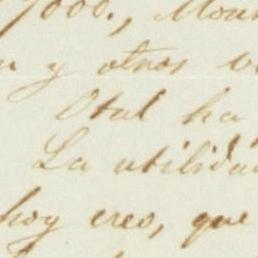 7000., Mon
y otros
Otal ha
La utilida
hoy creo, que